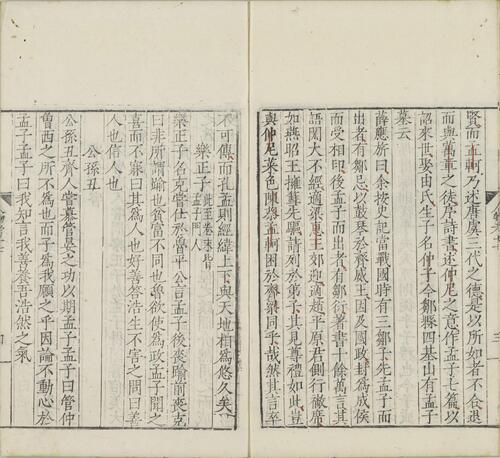 賢而孟軻乃述唐虞三代之德是以所如者不合退
而與萬章之徒序詩書述仲尼之意作孟子七篇以
詔來世娶由氏生子名仲子今鄒縣四基山有孟子
墓云
薛應旂曰余按史記當戰國時有三鄒子先孟子而
出者有鄒忌以鼓琴於齊威王因及國政封爲成侯
而受相印後孟子而出者有鄒衍著書十餘萬言其
語閎大不經適梁惠王郊迎適趙平原君側行襒席
如燕昭王擁篲先驅請列於弟子其見尊禮如此豈
與仲尼菜色陳蔡孟軻困於齊梁同乎哉然其言卒
不可傳而孔孟則經緯上下與天地相爲悠久矣
樂正子 此至卷末皆孟子門人
樂正子名克嘗仕於魯平公言孟子後喪踰前喪克
曰非所謂踰也貧富不同也魯欲使爲政孟子聞之
喜而不寐曰其爲人也好善浩生不害之問曰善
人也信人也
公孫丑
公孫丑齊人嘗慕管晏之功以期孟子孟子曰管仲
曾西之所不爲也而子爲我願之乎因論不動心於
孟子孟子曰我知言我善養吾浩然之氣